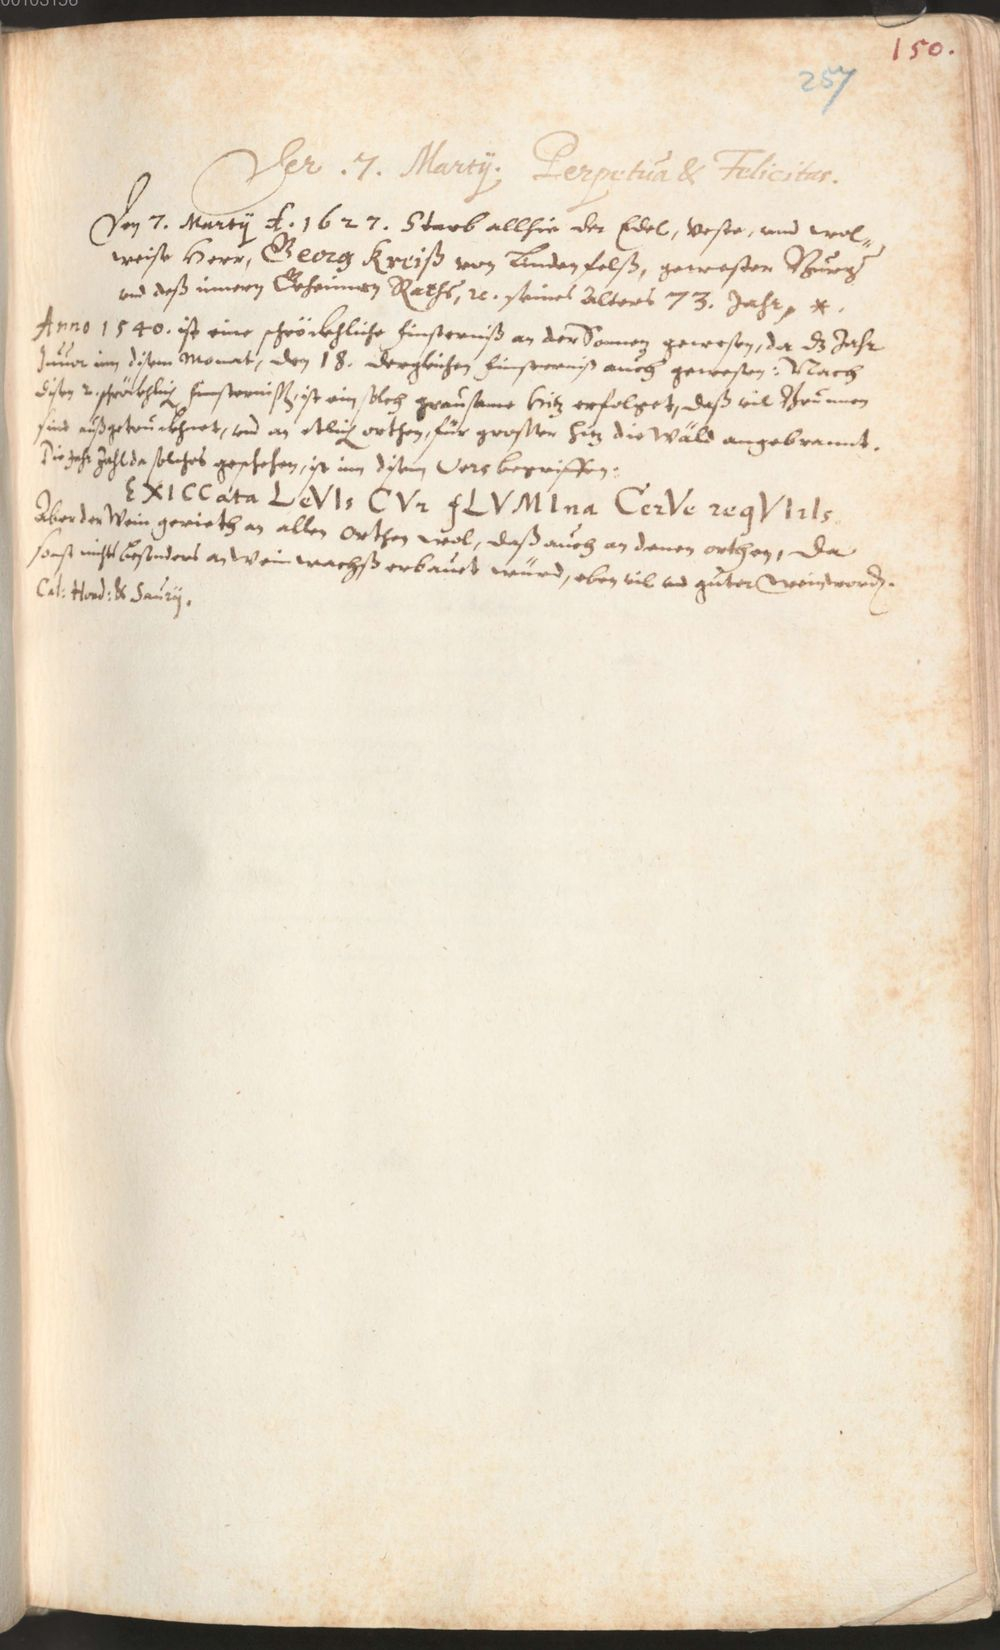 00103156
150.
257
Der .7. Martÿ. Perpetua & Felicitas.
Den 7. Martÿ A. 1627. Starb allhie der Edel, Veste, und wol„
weise Herr, Georg Kreiß von Lindenfelß, gewester Burg
und deß innern Geheimen Raths, ꝛc. seines Alters 73. Jahr, *.
Anno 1540. ist eine schröckhliche finsterniß an der Sonnen gewesen, da dz Jahr
zuuor inn disem Monat, den 18. dergleichen finsterniß auch gewesen: Nach
disen 2. schröckhlich finsternissz, ist ein solch grausame hitz erfolget, daß vil Brunnen
sind außgetruckhnet, und an etlich orthen, für grosser hitz die Wäld angebrannt.
Die Jahr Zahl da solches geschehen, ist inn disem Vers begriffen:
EXICCata LeVIs CVr fLVMIna CerVe reqVIrIs
Aber der Wein gerieth an allen orthen wol, daß auch an denen orthen, da
sonst nichts besonders an Weinwachß erbauet würd, eben vil und guter Wein worden.
Cal: Hond: & Saurÿ.